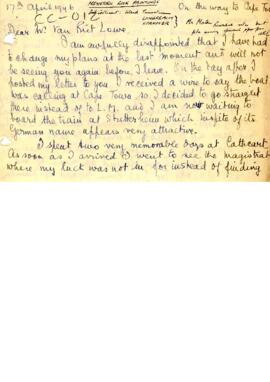 17th April 1946
PREHISTORIC ROCK PAINTINGS
On the way to Cape Town
CC-012
Dear Mr Van Riet Lowe
I am awfully disappointed that I have had
to change my plans at the last moment and will not
be seeing you again before I leave. On the day after I
posted my letter to you I received a wire to say the boat
was calling at Cape Town so I decided to go straight
there instead of to L.M. and I am now waiting to
board the train at Stutterheim which inspite of its
German name appears very attractive.
I spent two very memorable days at Cathcart
As soon as I arrived I went to see the magistrate
where my luck was not in for instead of finding